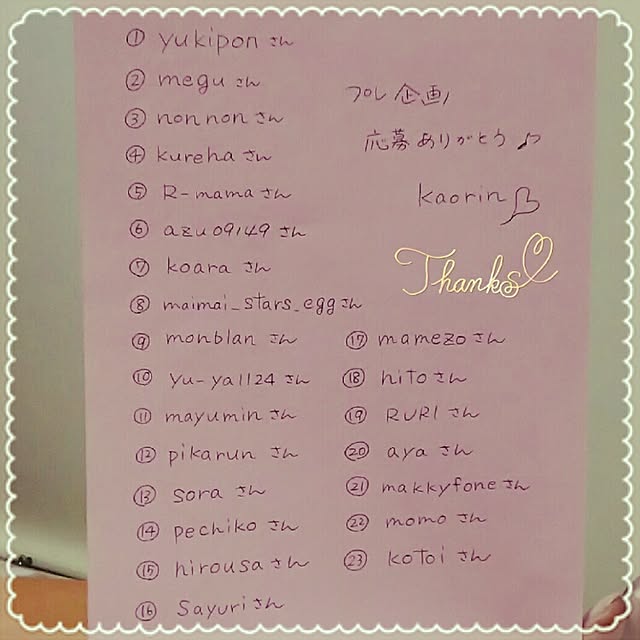 ① yukiponさん
② meguさん
③ nonnonさん
④ kurehaさん
⑤ R-mamaさん
⑥ azu09149さん
⑦ koaraさん
⑧ maimai_stars_eggさん
⑨ monblanさん
⑩ yu-ya1124さん
⑪ mayuminさん
⑫ pikarunさん
⑬ soraさん
⑭ pechikoさん
⑮ hirousaさん
⑯ Sayuriさん
プレ企画
応募ありがとう♪
kaorin
Thanks
⑰ mamezoさん
⑱ hitoさん
⑲ RURIさん
⑳ ayaさん
㉑ makkyfoneさん
㉒ momoさん
㉓ kotoiさん